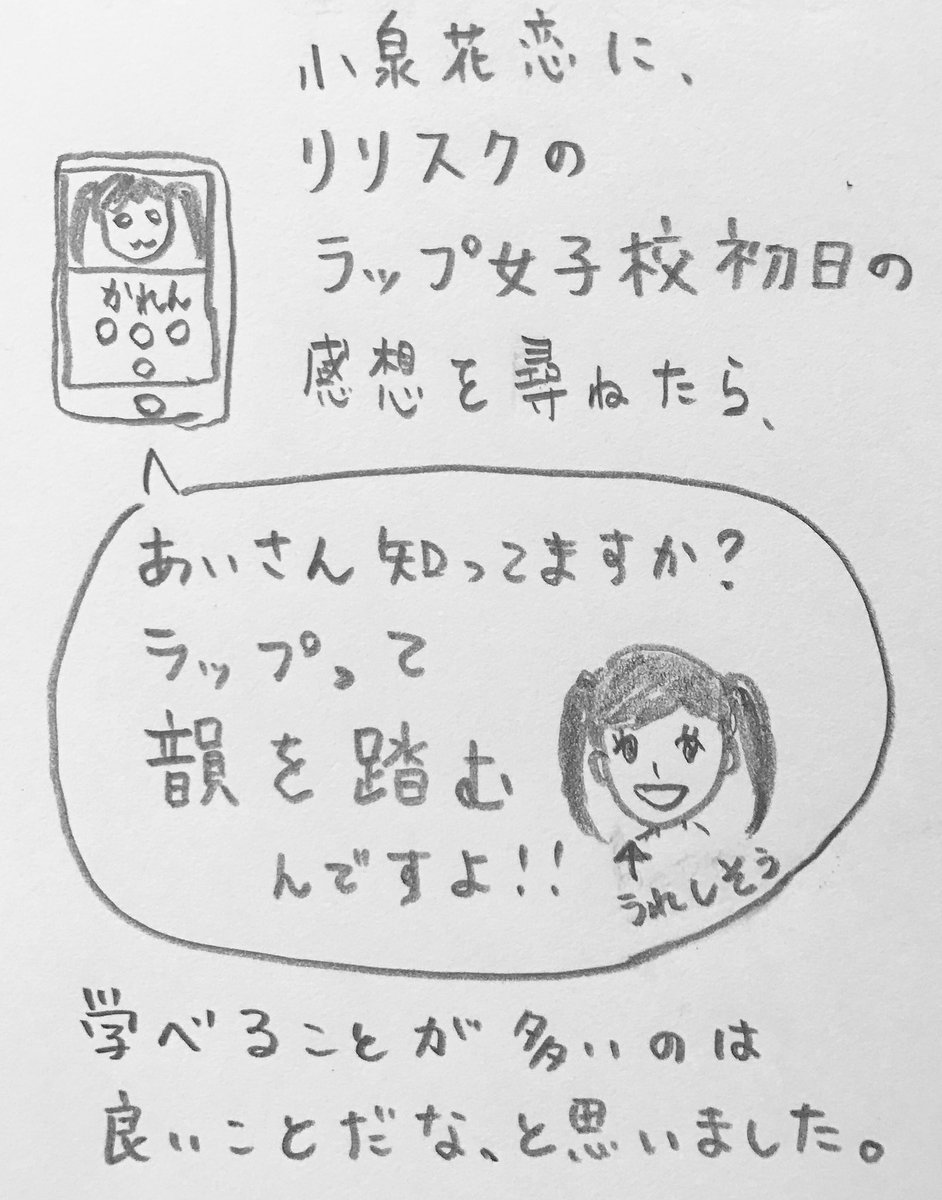 小泉花恋に、
リリスクの
ラップ女子校初日の
感想を尋ねたら、
かれん
あいさん知ってますか?
ラップって
韻を踏む
んですよ!!
↑
うれしそう
学べることが多いのは
良いことだな、と思いました。